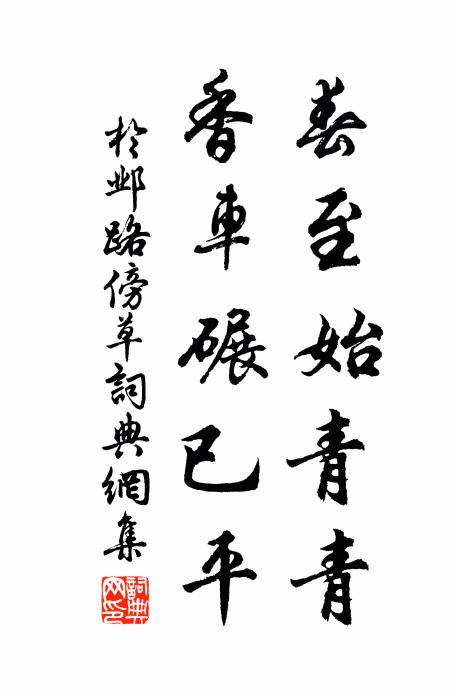 春至始青青
香車碾已平
於鄴路傍草詞典網集
詞典網印